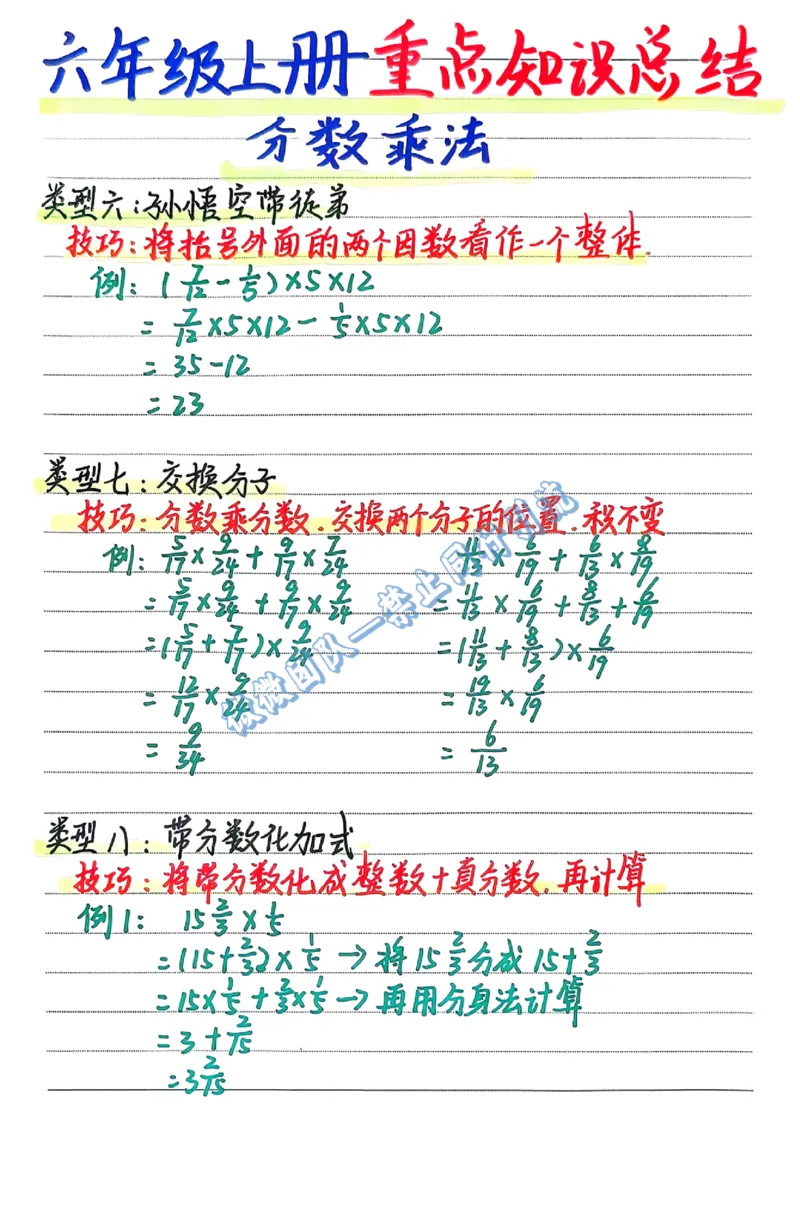 六年级上册重点知识总结
分数乘法
类型六：孙悟空带徒弟
技巧：将括号外面的两个因数看作一个整体.
例：(7/12-1/5)×5×12
=7/12×5×12-1/5×5×12
=35-12
=23
类型七：交换分子
技巧：分数乘分数.交换两个分子的位置.积不变
例：5/17×9/24+9/17×7/24
=5/17×9/24+9/17×9/24
=(5/17+7/17)×9/24
=12/17×9/24
=9/34
11/13×6/19+6/13×8/19
=11/13×6/19+8/13+6/19
=(11/13+8/13)×6/19
=19/13×6/19
=6/13
类型八：带分数化加式
技巧：将带分数化成整数+真分数.再计算
例1：15 2/3×1/5
=(15+2/3)×1/5→将15 2/3分成15+2/3
=15×1/5+2/3×1/5→再用分身法计算
=3+2/15
=3 2/15
微微团队—禁止同行